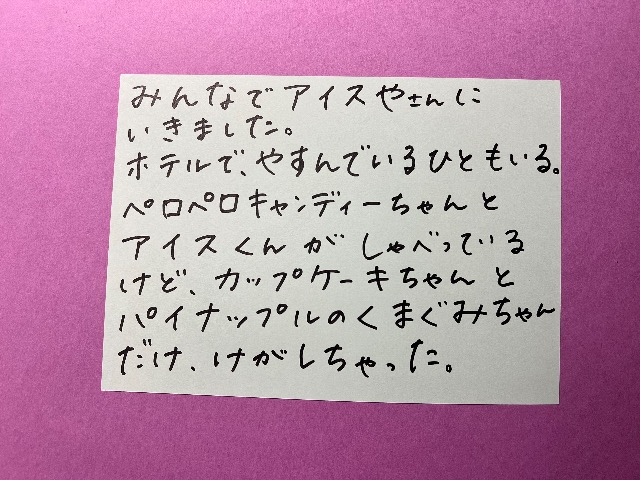 みんなでアイスやさんに
いきました。
ホテルで、やすんでいるひともいる。
ペロペロキャンディーちゃんと
アイスくんがしゃべっている
けど、カップケーキちゃんと
パイナップルのくまぐみちゃん
だけ、けがしちゃった。